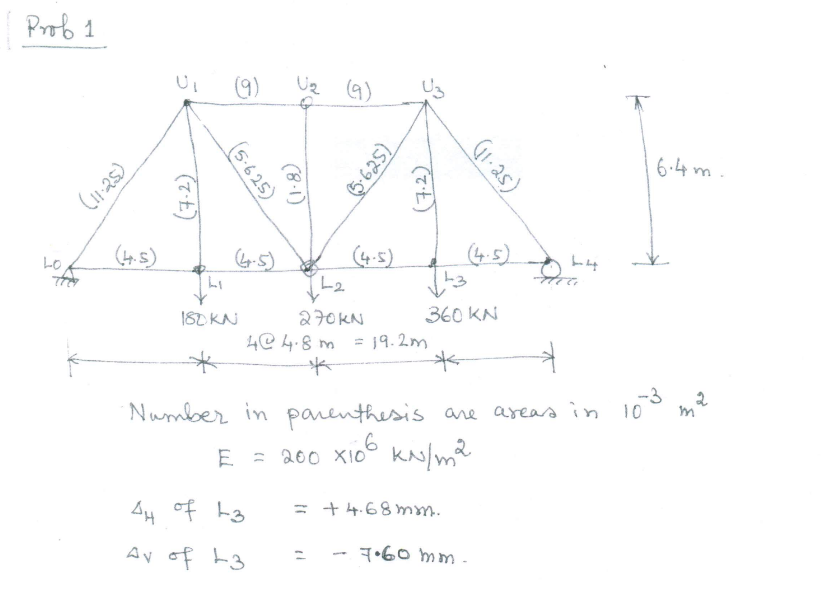 Prob 1
U1 (9) U2 (9) U3
(11.25) (7.2) (5.625) (1.8) (5.625) (7.2) (11.25)
6.4 m.
L0 (4.5) (4.5) (4.5) (4.5) L4
L1 L2 L3
180KN 270KN 360KN
4@ 4.8 m = 19.2m
Number in parenthesis are areas in 10⁻³ m²
E = 200 X10⁶ KN/m²
ΔH of L3 = +4.68mm.
Δv of L3 = - 7.60 mm.